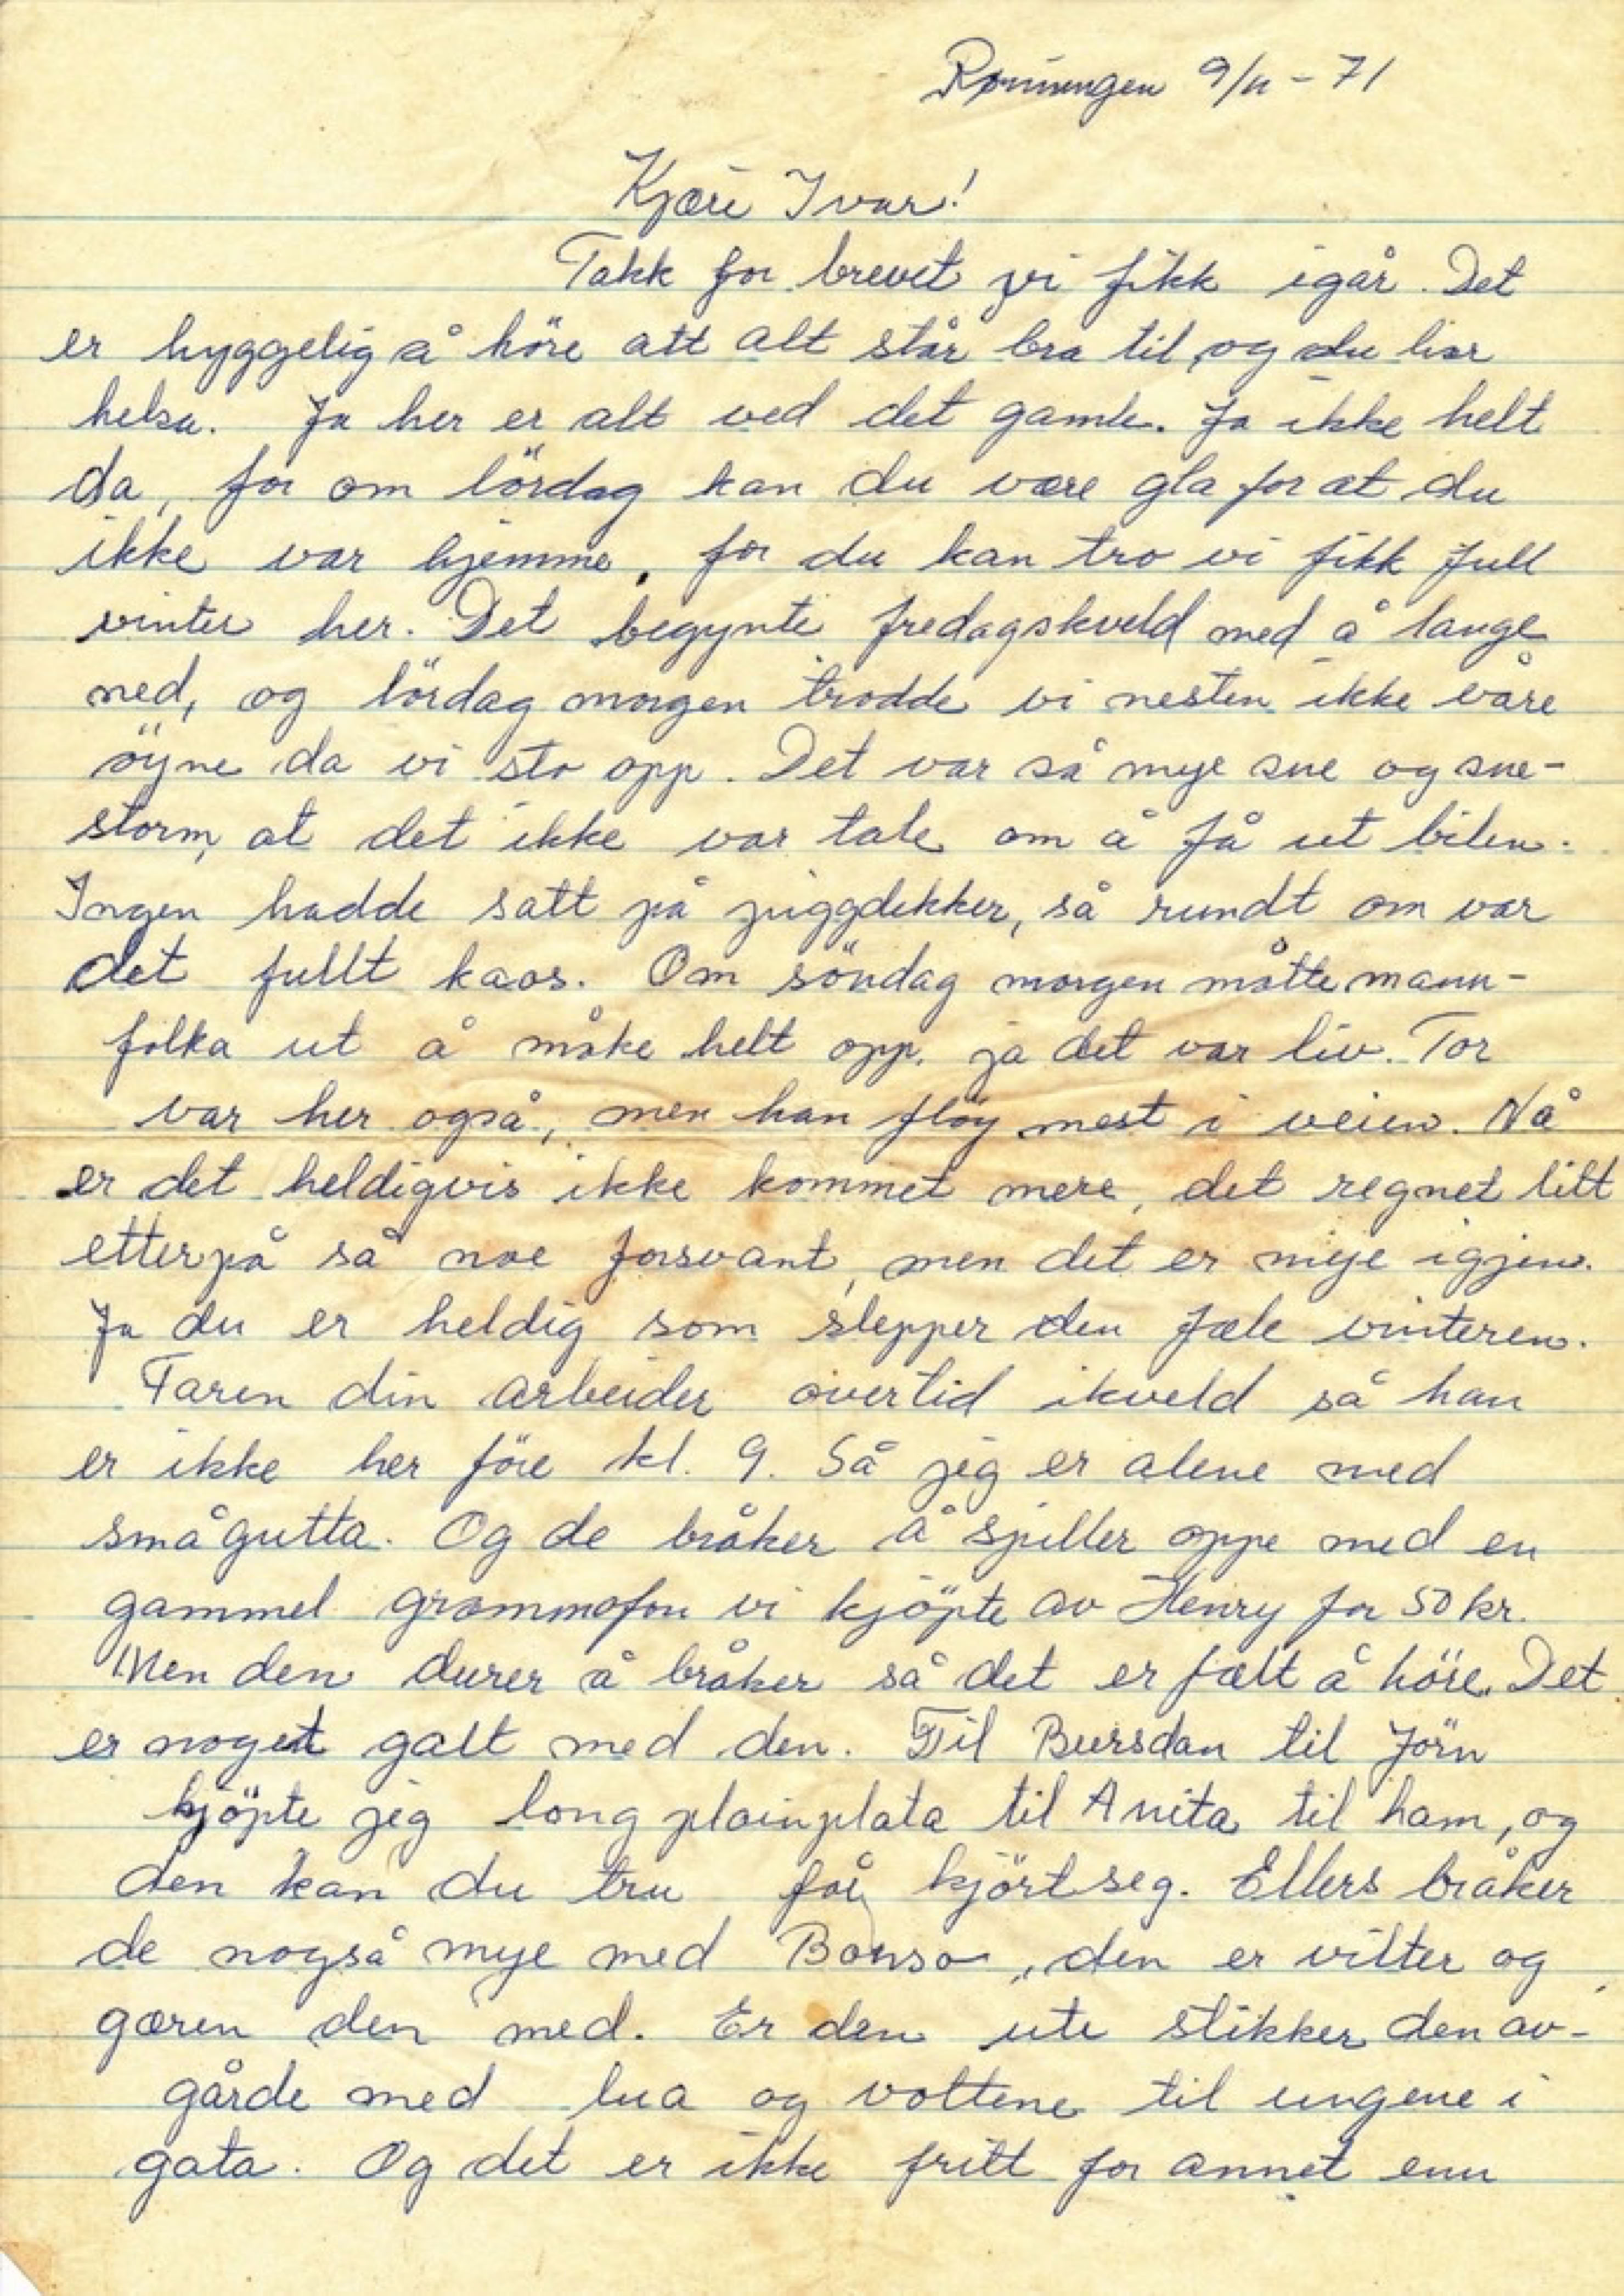 Rønningen 9/11 - 71
Kjære Ivar!
Takk for brevet vi fikk igår. Det
er hyggelig å höre att alt står bra til, og du har
helsa. Ja her er alt ved det gamle. Ja ikke helt
da, for om lördag kan du være gla for at du
ikke var hjemme, for du kan tro vi fikk full
vinter her. Det begynte fredagskveld med å lange
ned, og lördag morgen trodde vi nesten ikke våre
öyne da vi sto opp. Det var så mye sne og sne-
storm, at det ikke var tale om å få ut bilen.
Ingen hadde satt på piggdekker, så rundt om var
det fullt kaos. Om söndag morgen måtte mann-
folka ut å måke helt opp, ja det var liv. Tor
var her også, men han fløy mest i veien. Nå
er det heldigvis ikke kommet mere, det regnet litt
etterpå så noe forsvant, men det er mye igjen.
Ja du er heldig som slepper den fæle vinteren.
Faren din arbeider overtid ikveld så han
er ikke her före kl. 9. Så jeg er alene med
smågutta. Og de bråker å spiller oppe med en
gammel grammofon vi kjöpte av Henry for 50 kr.
Men den durer å bråker så det er fælt å höre. Det
er noget galt med den. Til Bursdan til Jörn
kjöpte jeg long plainplata til Anita til ham, og
den kan du tru får kjört seg. Ellers bråker
de nogså mye med Bonso, den er vilter og
gæren den med. Er den ute stikker den av-
gårde med lua og vottene til ungene i
gata. Og det er ikke fritt for annet enn